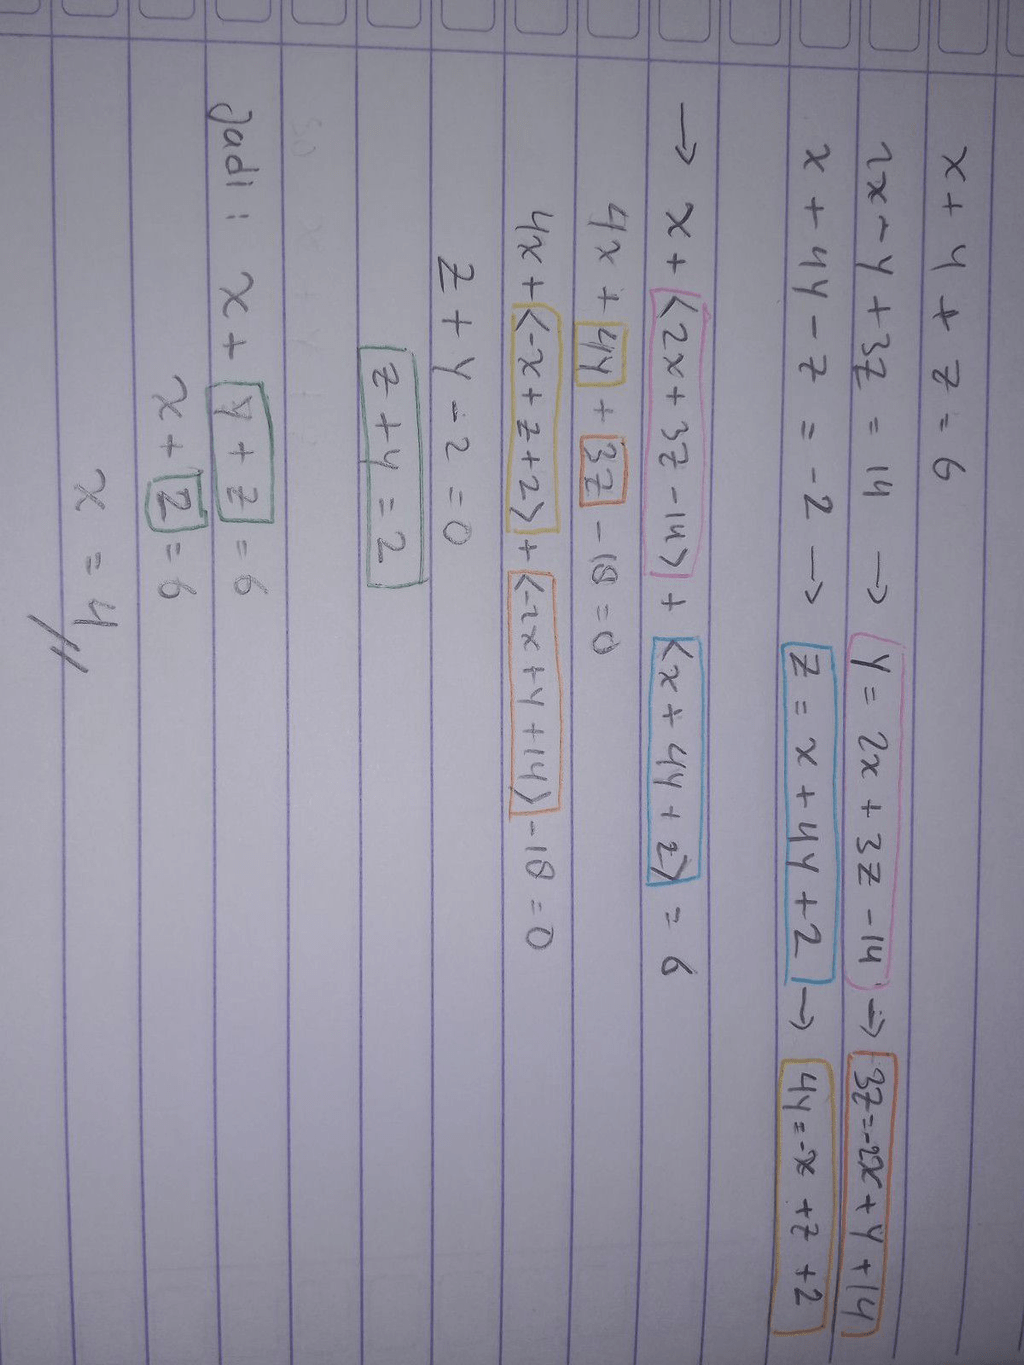 x + y + z = 6
2x - y + 3z = 14 → y = 2x + 3z - 14 → 3z = -2x + y + 14
x + 4y - z = -2 → z = x + 4y + 2 → 4y = -x + z + 2
→ x + (2x + 3z - 14) + (x + 4y + 2) = 6
4x + 4y + 3z - 18 = 0
4x + (-x + z + 2) + (-2x + y + 14) - 18 = 0
z + y - 2 = 0
z + y = 2
Jadi : x + y + z = 6
x + 2 = 6
x = 4 //